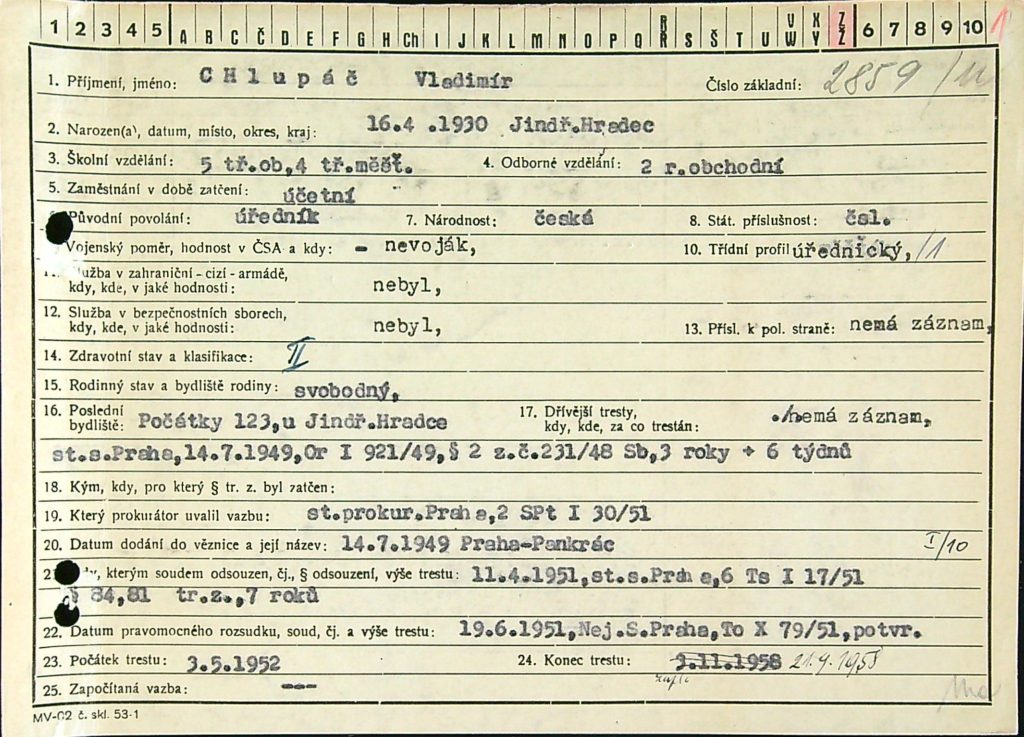 1 2 3 4 5 A B C Č D E F G H Ch I J K L M N O P Q R Ř S Š T U V W X Y Z Ž 6 7 8 9 10 1
1. Příjmení, jméno: CHlupáč Vladimír Číslo základní: 2859/
2. Narozen(a), datum, místo, okres, kraj: 16.4 .1930 Jindř.Hradec
3. Školní vzdělání: 5 tř.ob,4 tř.měšť. 4. Odborné vzdělání: 2 r.obchodní
5. Zaměstnání v době zatčení: účetní
Původní povolání: úředník 7. Národnost: česká 8. Stát. příslušnost: čsl.
Vojenský poměr, hodnost v ČSA a kdy: - nevoják, 10. Třídní profil úřednický, /1
služba v zahraniční - cizí - armádě,
kdy, kde, v jaké hodnosti: nebyl,
12. Služba v bezpečnostních sborech,
kdy, kde, v jaké hodnosti: nebyl, 13. Přísl. k pol. straně: nemá záznam,
14. Zdravotní stav a klasifikace: II
15. Rodinný stav a bydliště rodiny: svobodný,
16. Poslední bydliště: Počátky 123,u Jindř.Hradce 17. Dřívější tresty, kdy, kde, za co trestán: ./nemá záznam,
st.s.Praha,14.7.1949,Or I 921/49,§ 2 z.č.231/48 Sb,3 roky + 6 týdnů
18. Kým, kdy, pro který § tr. z. byl zatčen:
19. Který prokurátor uvalil vazbu: st.prokur.Praha,2 SPt I 30/51
20. Datum dodání do věznice a její název: 14.7.1949 Praha-Pankrác I/10
kterým soudem odsouzen, čj., § odsouzení, výše trestu: 11.4.1951,st.s.Praha,6 Ts I 17/51
§ 84,81 tr.z.,7 roků
22. Datum pravomocného rozsudku, soud, čj. a výše trestu: 19.6.1951,Nej.S.Praha,To X 79/51,potvr.
23. Počátek trestu: 3.5.1952 24. Konec trestu: 3.11.1958 21.4.1958
25. Započítaná vazba: ---
MV-02 č. skl. 53-1